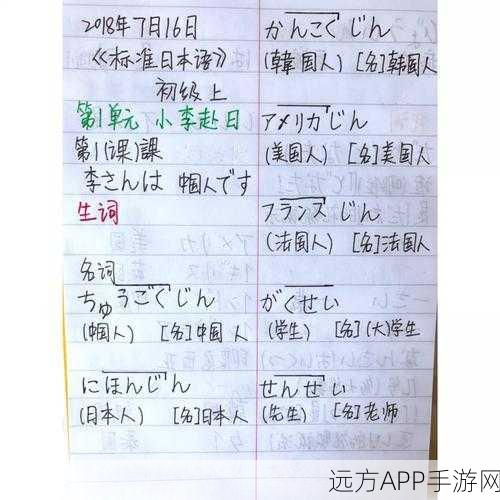 2018年7月16日
《标准日本语》
初级上
第1单元 小李赴日
第1(课)課
李さんは 中国人です
生词
名词
ちゅうごくじん
(中国人) [名]中国人
にほんじん
(日本人) [名]日本人
かんこくじん
(韓国人) [名]韩国人
アメリカじん
(美国人) [名]美国人
フランスじん
(法国人) [名]法国人
がくせい
(学生) [名](大)学生
せんせい
(先生) [名]老师
远方APP手游网